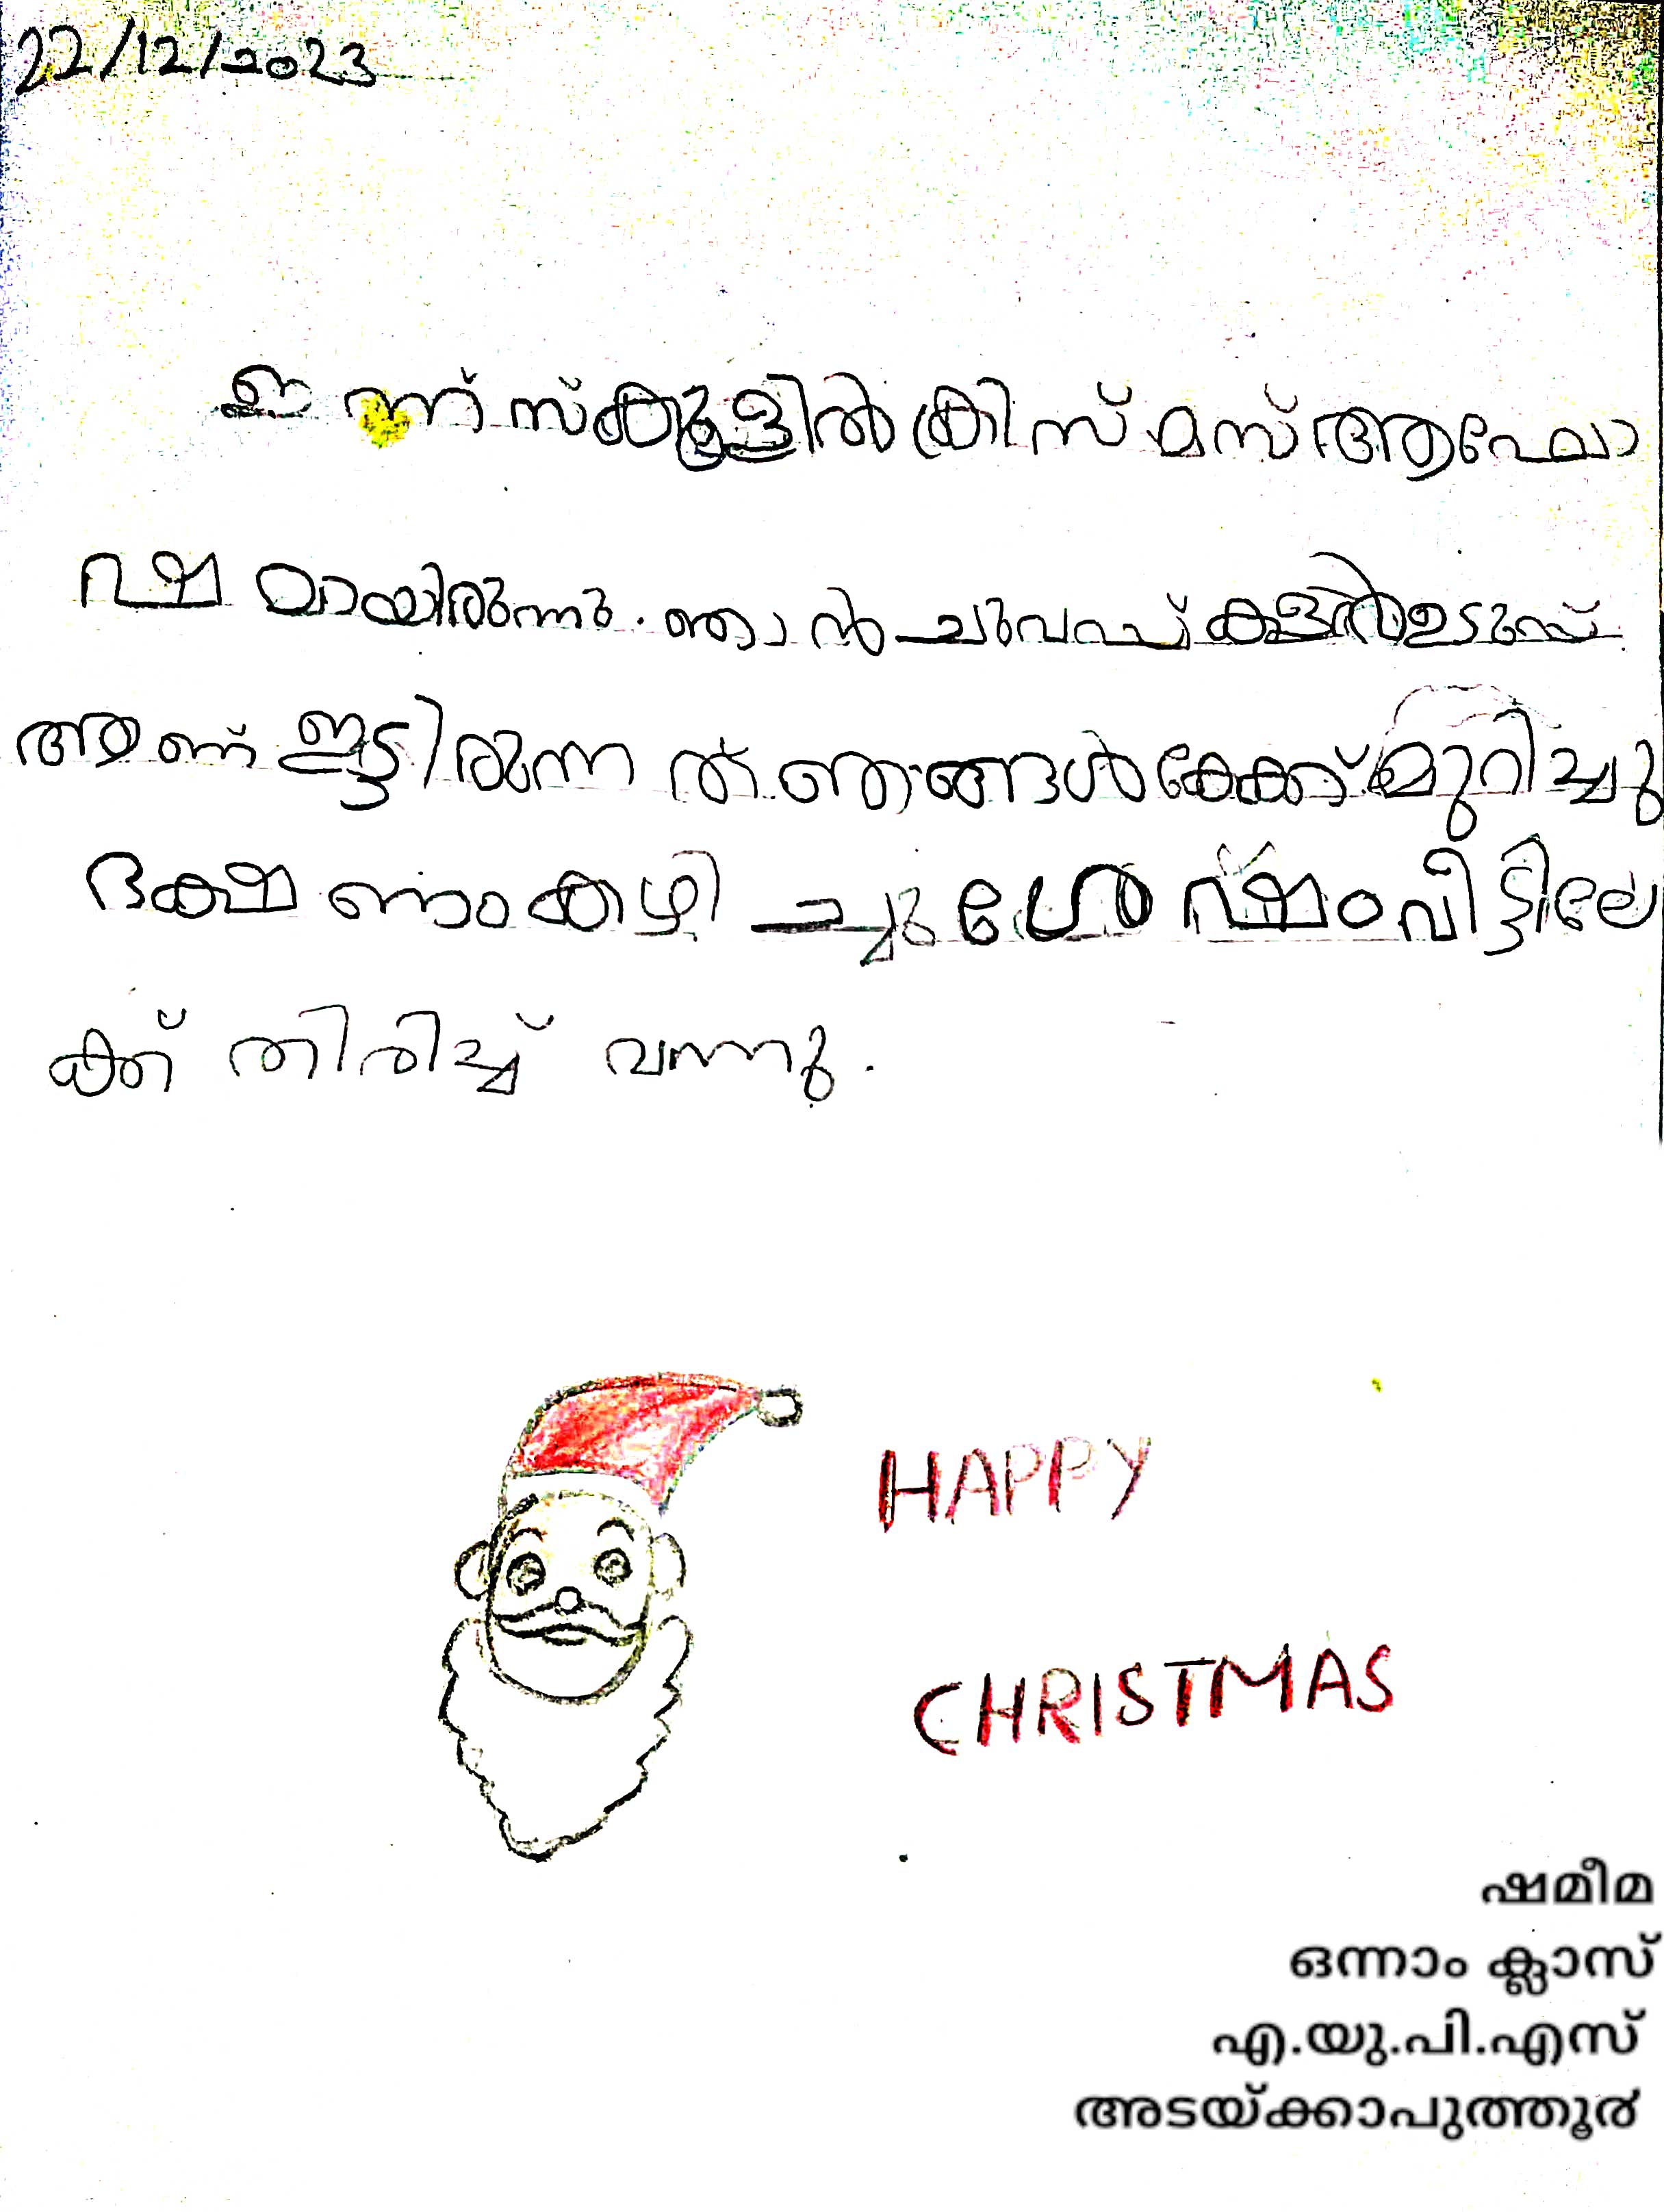 22/12/2023
ഇന്ന് സ്കൂളിൽ ക്രിസ്മസ് ആഘോ
ഷ മായിരുന്നു. ഞാൻ ചുവപ്പ് കളർ ഉടുപ്പ്
ആണ് ഇട്ടിരുന്നത് ഞങ്ങൾ കേക്ക് മുറിച്ചു
ഭക്ഷണം കഴിച്ചു ശേഷം വീട്ടിലേ
ക്ക് തിരിച്ച് വന്നു.
HAPPY
CHRISTMAS
ഷമീമ
ഒന്നാം ക്ലാസ്
എ.യു.പി.എസ്
അടയ്ക്കാപുത്തൂർ